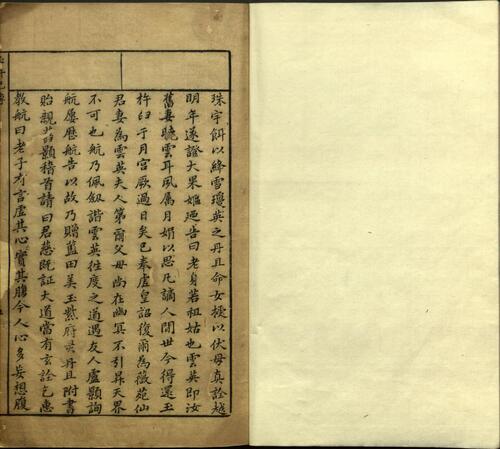 珠宇餌以絳雪瓊英之丹且命女極以伏母真詮越
明年遂證大果嫗迺告曰老身若祖姑也雲英即汝
舊妻曉雲耳夙属月娟以思凡謫人間世今得還玉
杵臼于月宮厥過日矣已奉虛皇詔復爾為薇苑仙
君妻為雲英夫人第爾父母尚在幽冥不引昇天界
不可也航乃佩劔諧雲英徃度之道遇友人盧顥詢
航屢歷航告以故乃贈藍田美玉紫府灵丹且附書
貽親故顥稽首請曰君慈既証大道當有玄詮乞惠
教航曰老子有言虛其心實其腹今人心多妄想腹